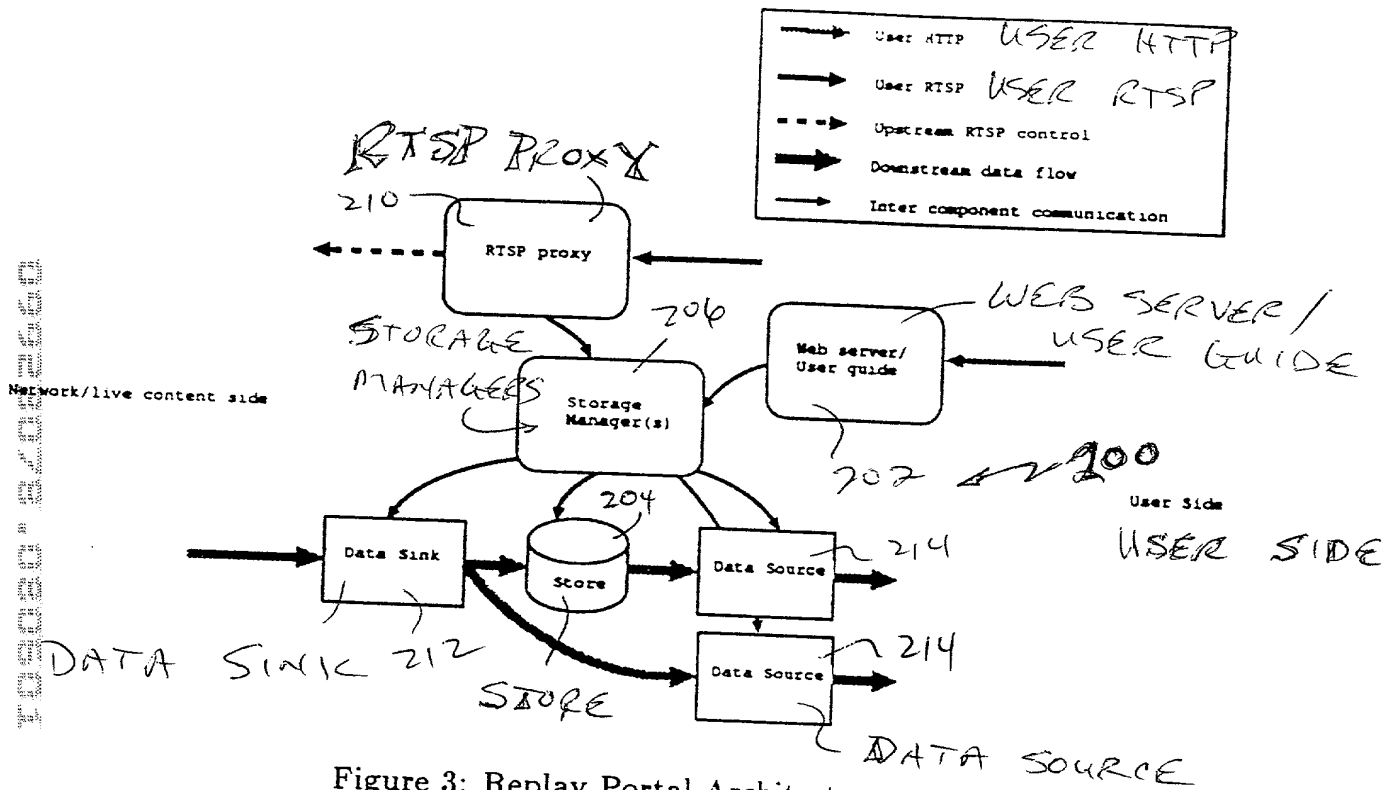 User HTTP USER HTTP
User RTSP USER RTSP
Upstream RTSP control
Downstream data flow
Inter component communication
RTSP PROXY
210
RTSP proxy
206
STORAGE
MANAGERS
Storage
Manager(s)
WEB SERVER/
USER GUIDE
Web server/
User guide
Network/live content side
202
200
User Side
USER SIDE
204
Data Sink
Store
Data Source
214
DATA SINK 212
STORE
Data Source
214
DATA SOURCE
Figure 3: Replay Portal